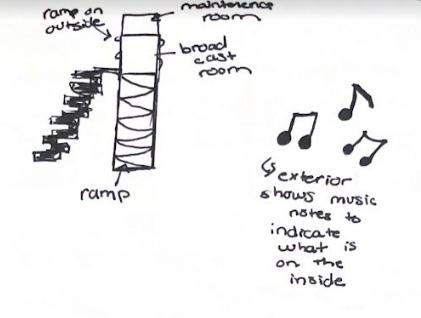 ramp on
outside
maintenence
room
broad
cast
room
ramp
exterior
shows music
notes to
indicate
what is
on the
inside